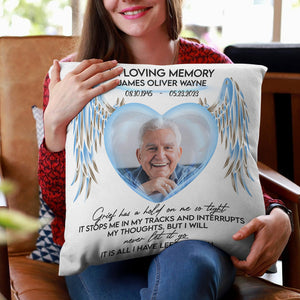 LOVING MEMORY
JAMES OLIVER WAYNE
08.10.1945 - 05.23.2023
Grief has a hold on me so tight
IT STOPS ME IN MY TRACKS AND INTERRUPTS
MY THOUGHTS, BUT I WILL
never let it go
IT IS ALL I HAVE LEF